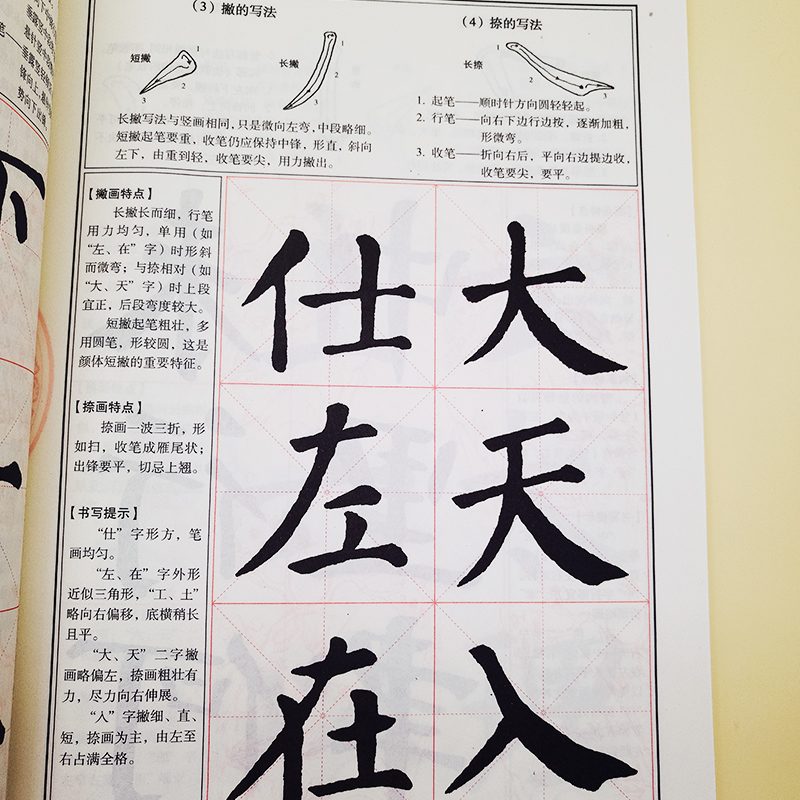 （3）撇的写法
短撇
1
2
3
长撇
1
2
3
长撇写法与竖画相同，只是微向左弯，中段略细。
短撇起笔要重，收笔仍应保持中锋，形直，斜向
左下，由重到轻，收笔要尖，用力撇出。
（4）捺的写法
长捺
1
2
3
1. 起笔——顺时针方向圆轻轻起。
2. 行笔——向右下边行边按，逐渐加粗，
形微弯。
3. 收笔——折向右后，平向右边提边收，
收笔要尖，要平。
【撇画特点】
长撇长而细，行笔
用力均匀，单用（如
“左、在”字）时形斜
而微弯；与捺相对（如
“大、天”字）时上段
宜正，后段弯度较大。
短撇起笔粗壮，多
用圆笔，形较圆，这是
颜体短撇的重要特征。
【捺画特点】
捺画一波三折，形
如扫，收笔成雁尾状；
出锋要平，切忌上翘。
【书写提示】
“仕”字形方，笔
画均匀。
“左、在”字外形
近似三角形，“工、土”
略向右偏移，底横稍长
且平。
“大、天”二字撇
画略偏左，捺画粗壮有
力，尽力向右伸展。
“入”字撇细、直、
短，捺画为主，由左至
右占满全格。
仕 大
左 天
在 入